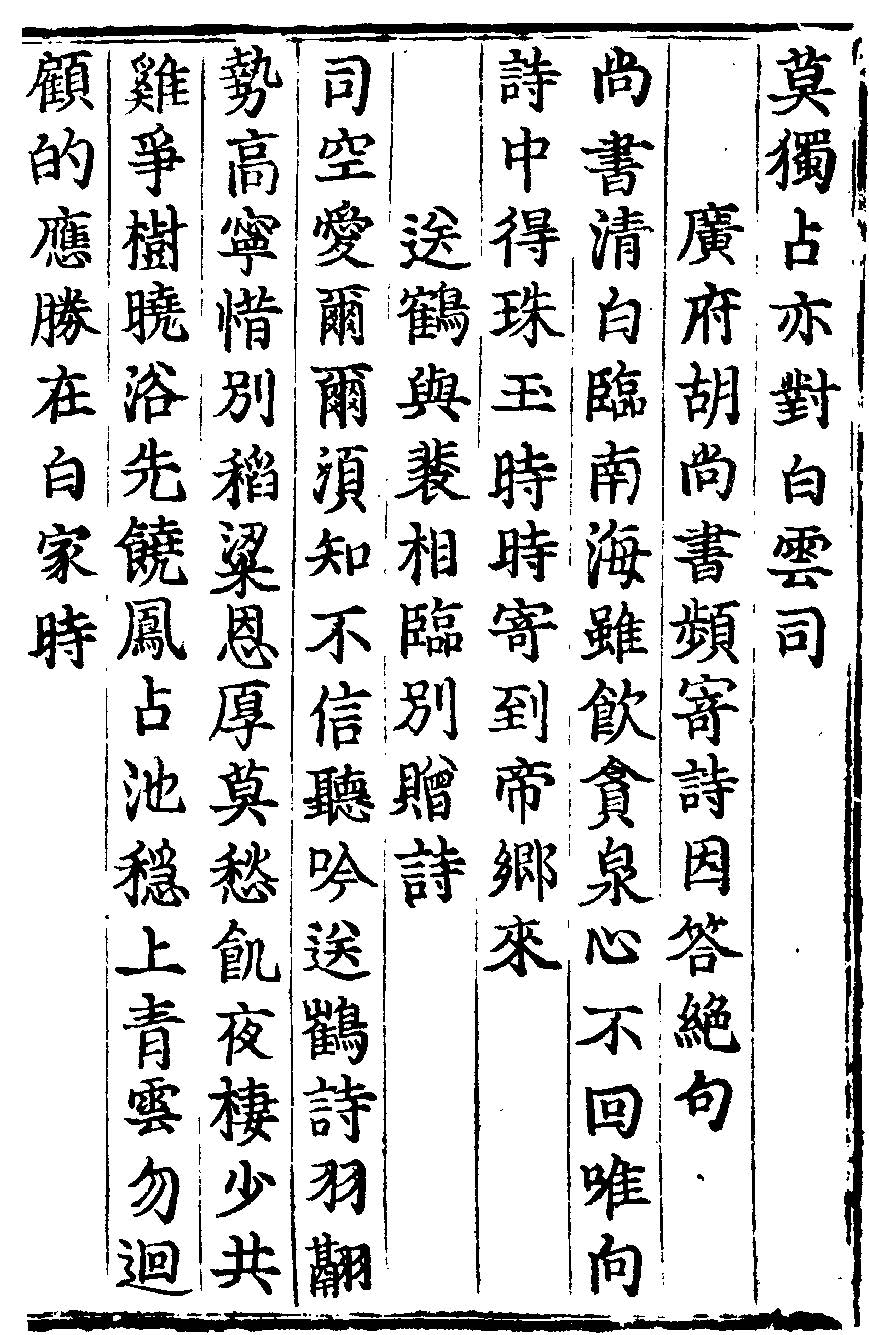 莫獨占亦對白雲司
廣府胡尚書頻寄詩因答絶句
尚書清白臨南海雖飲貪泉心不回唯向
詩中得珠玉時時寄到帝鄉來
送鶴與裴相臨別贈詩
司空愛爾爾須知不信聽吟送鶴詩羽翮
勢高寧惜別稻粱恩厚莫愁飢夜棲少共
雞爭樹曉浴先饒鳳占池穩上青雲勿迴
顧的應勝在白家時